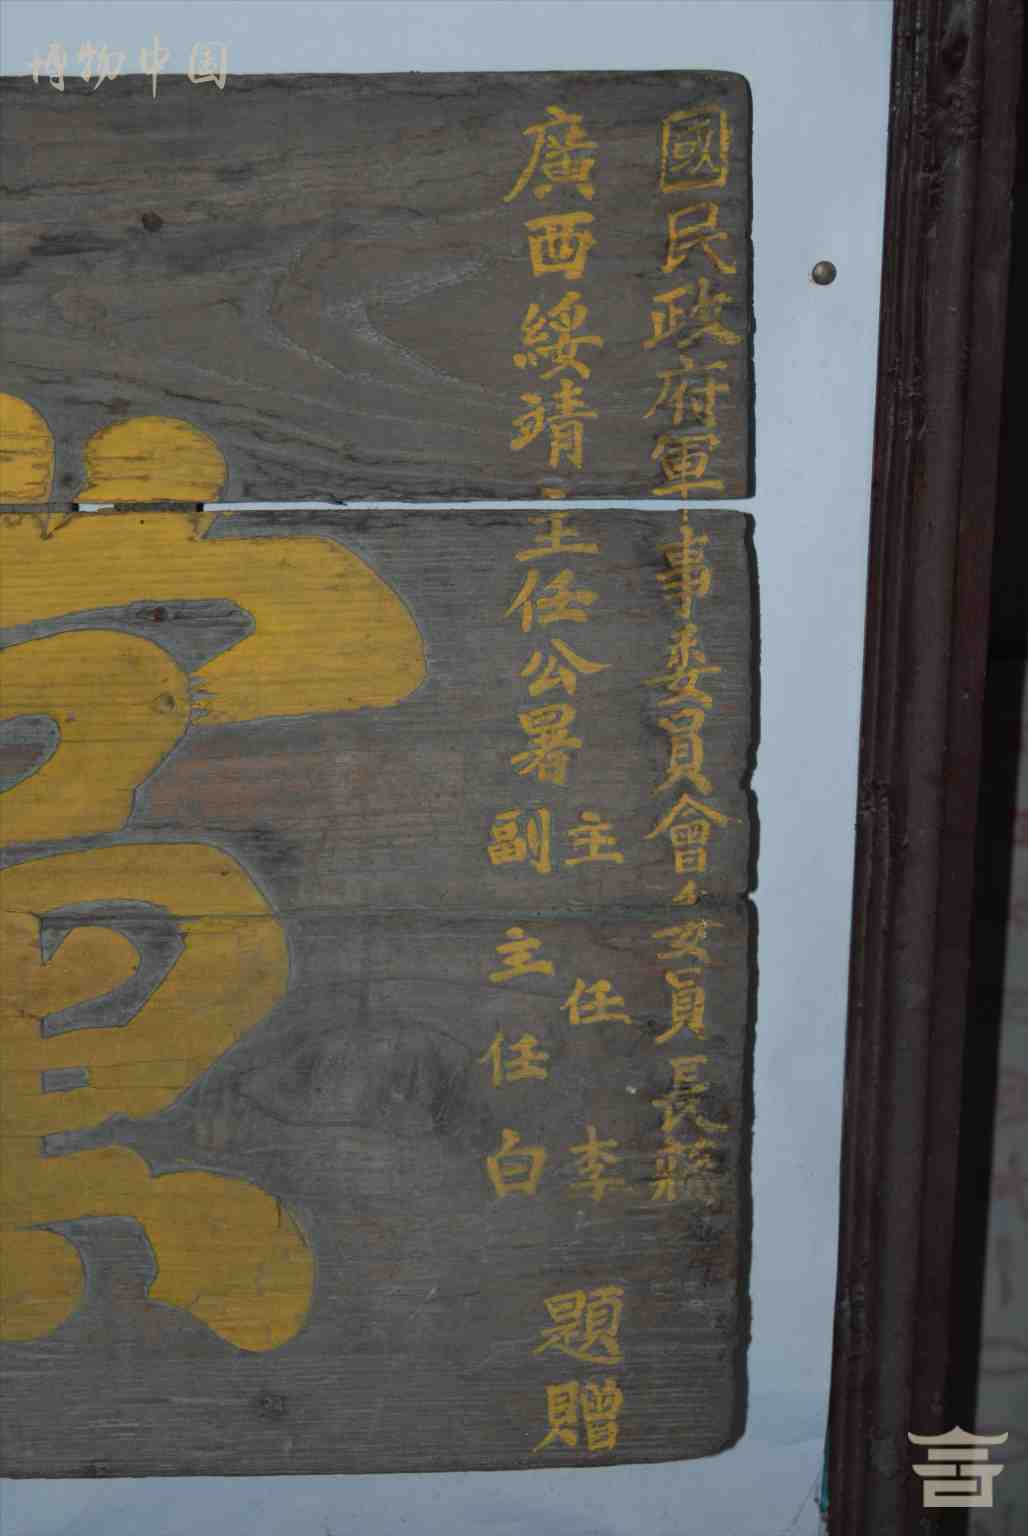 國民政府軍事委員會委員長蔣
廣西綏靖主任公署
主任李
副主任白
題贈
博物中国